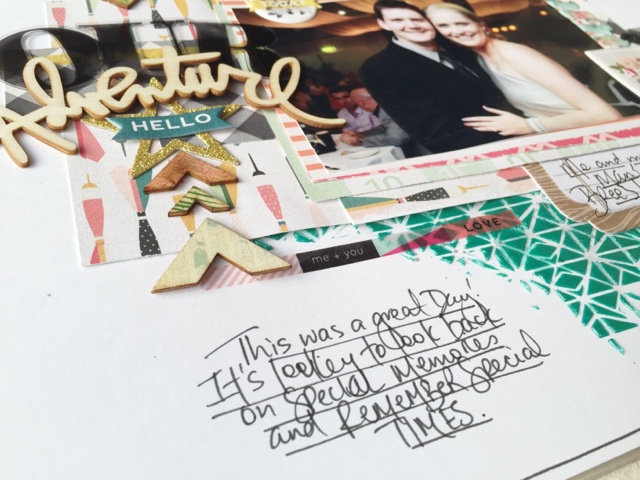 TODAY
Adventure
HELLO
Me and m
Man
LOVE
me + you
This was a great Day!
It's lovley to look back
on Special Memories
and Remember Special
TIMES.